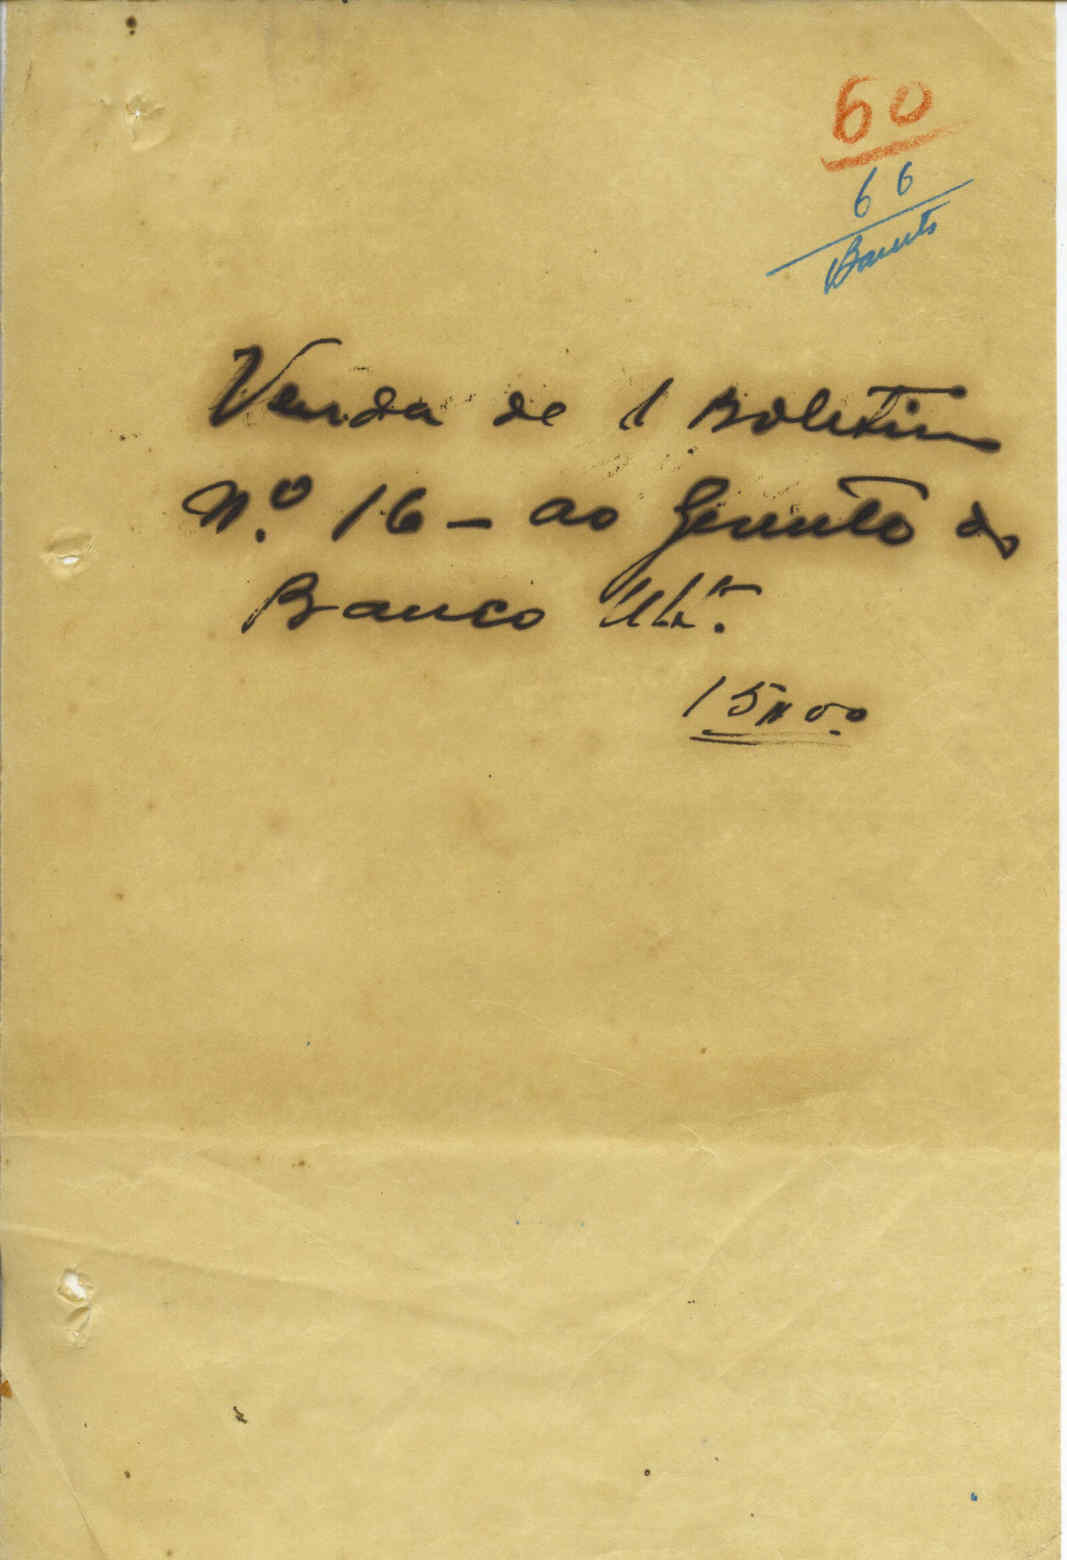 60
66
Venda de 1 Boletim
N.º 16 - ao Gerente do
Banco Ult.º
15$00